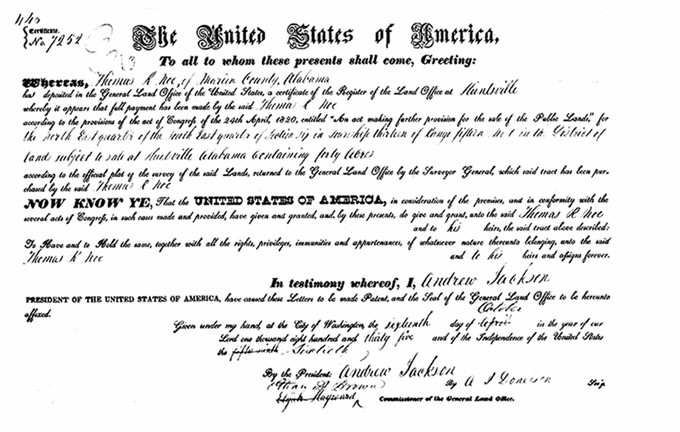 446
Certificate
No. 7252
The United States of America,
To all to whom these presents shall come, Greeting:
Whereas, Thomas K Noe, of Marion County, Alabama
has deposited in the General Land Office of the United States, a certificate of the Register of the Land Office at Huntsville
whereby it appears that full payment has been made by the said Thomas K Noe
according to the provisions of the act of Congress of the 24th April, 1820, entitled "An act making further provision for the sale of the Public Lands," for
the North East quarter of the South East quarter of Section six in Township thirteen of Range fifteen West in the District of
lands subject to sale at Huntsville Alabama Containing forty Acres
according to the official plat of the survey of the said Lands, returned to the General Land Office by the Surveyor General, which said tract has been pur-
chased by the said Thomas K Noe
NOW KNOW YE, That the UNITED STATES OF AMERICA, in consideration of the premises, and in conformity with the
several acts of Congress, in such cases made and provided, have given and granted, and, by these presents, do give and grant, unto the said Thomas K Noe
and to his heirs, the said tract above described:
To Have and to Hold the same, together with all the rights, privileges, immunities and appurtenances, of whatsoever nature thereunto belonging, unto the said
Thomas K Noe and to his heirs and assigns forever.
In testimony whereof, I, Andrew Jackson
PRESIDENT OF THE UNITED STATES OF AMERICA, have caused these Letters to be made Patent, and the Seal of the General Land Office to be hereunto
affixed. October
Given under my hand, at the City of Washington, the sixteenth day of April in the year of our
Lord one thousand eight hundred and thirty five and of the Independence of the United States
the fifty ninth Sixtieth
By the President: Andrew Jackson
Ethan A Brown By A J Donelson Sec'y.
Elijah Hayward Commissioner of the General Land Office.